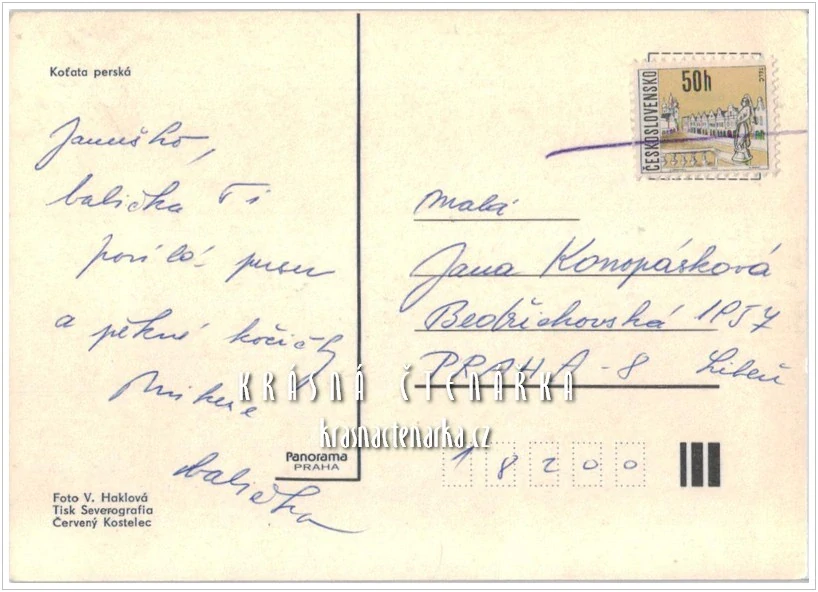 Koťata perská
Janičko,
babička Ti
posílá pusu
a pěkné kočičky
babička
Foto V. Haklová
Tisk Severografia
Červený Kostelec
Panorama
PRAHA
ČESKOSLOVENSKO
50h
TELČ
Malá
Jana Konopásková
Bedřichovská 1957
PRAHA - 8 Libeň
18200
KRÁSNÁ ČTENÁRKA
krasnactenarka.cz